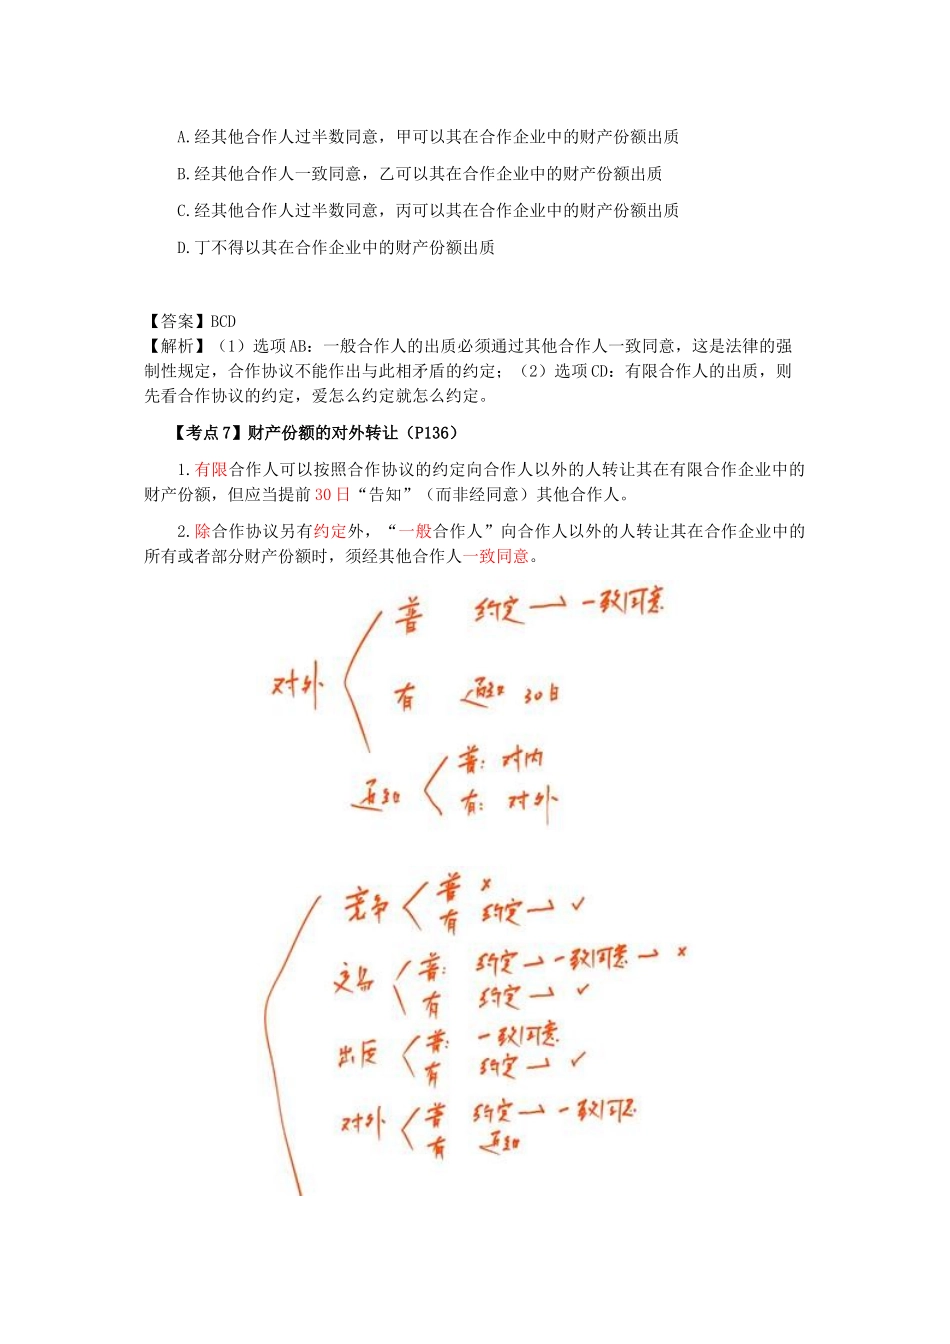 A.经其他合作人过半数同意，甲可以其在合作企业中的财产份额出质
B.经其他合作人一致同意，乙可以其在合作企业中的财产份额出质
C.经其他合作人过半数同意，丙可以其在合作企业中的财产份额出质
D.丁不得以其在合作企业中的财产份额出质
【答案】BCD
【解析】（1）选项 AB：一般合作人的出质必须通过其他合作人一致同意，这是法律的强
制性规定，合作协议不能作出与此相矛盾的约定；（2）选项 CD：有限合作人的出质，则
先看合作协议的约定，爱怎么约定就怎么约定。
【考点 7】财产份额的对外转让（P136）
1.有限合作人可以按照合作协议的约定向合作人以外的人转让其在有限合作企业中的
财产份额，但应当提前 30 日“告知”（而非经同意）其他合作人。
2.除合作协议另有约定外，“一般合作人”向合作人以外的人转让其在合作企业中的
所有或者部分财产份额时，须经其他合作人一致同意。
普 约定→一致同意
对外
有 通知 30日
普：对内
通知
有：对外
普 ×
竞争
有 约定→✓
普：约定→一致同意→×
交易
有 约定→✓
普：一致同意
出质
有 约定→✓
普 约定→一致同意
对外
有 通知